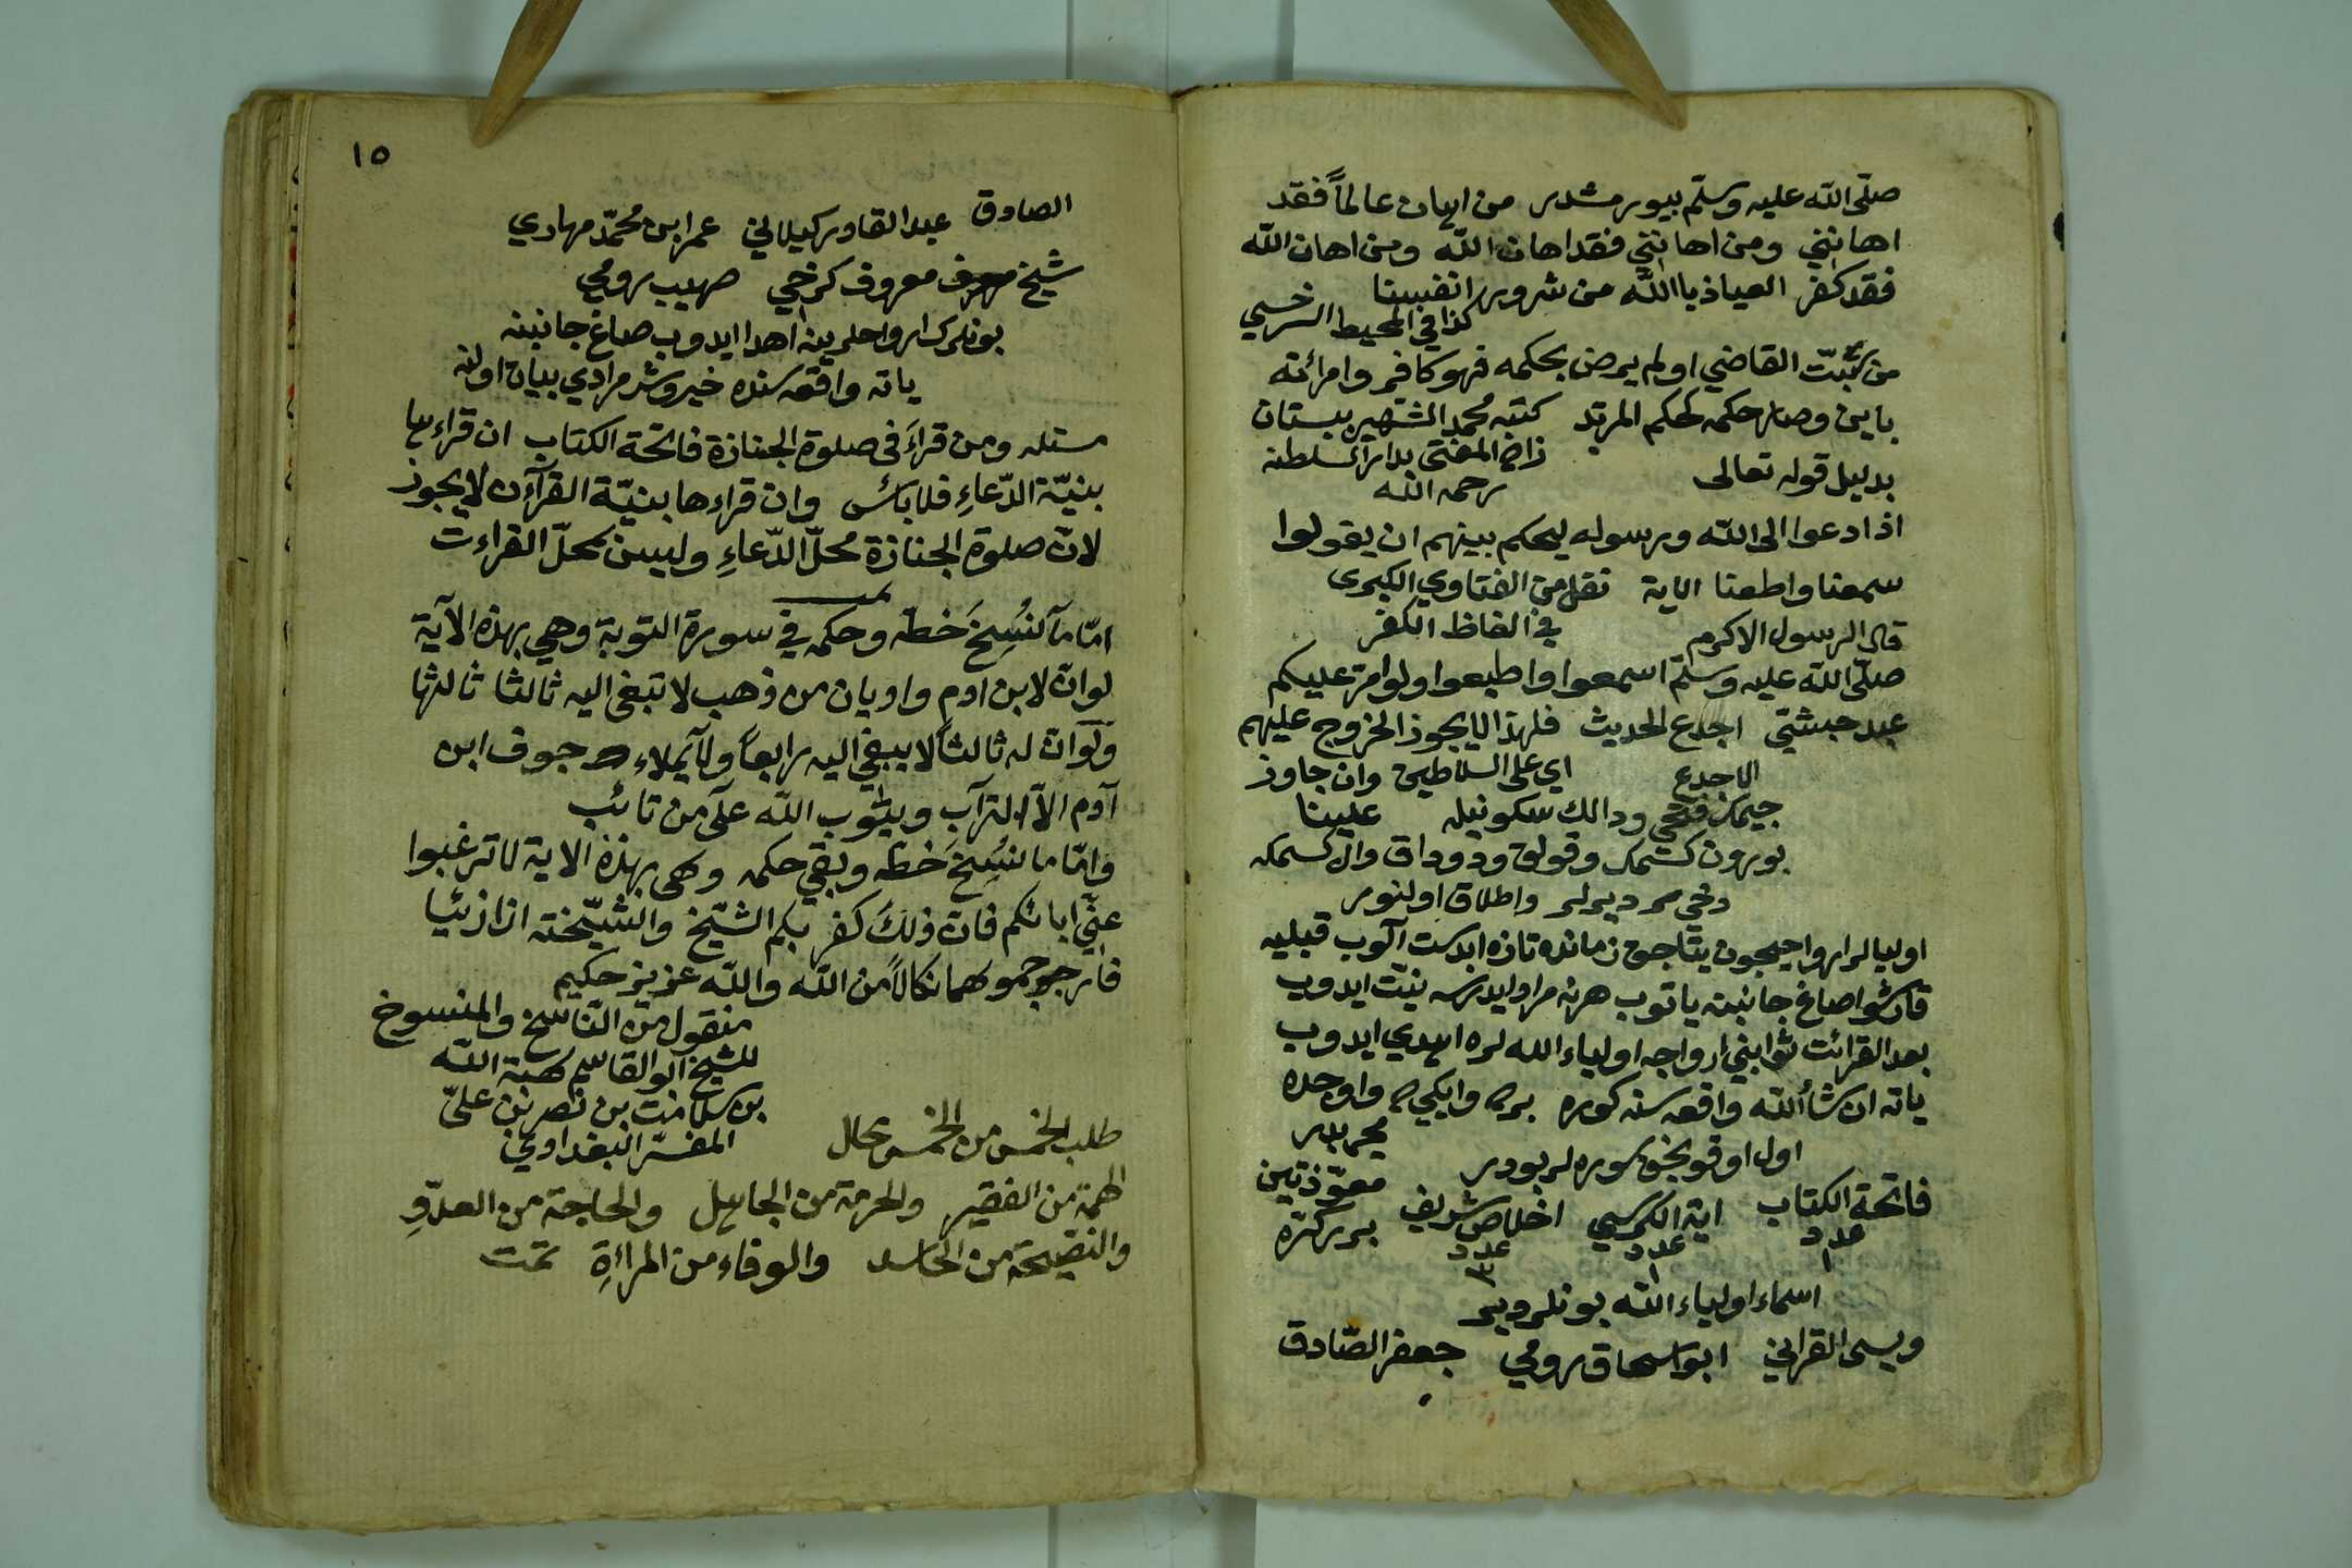 صلّى الله عليه وسلّم بيورمشدر من اهان عالماً فقد
اهانني ومن اهانني فقد اهان الله ومن اهان الله
فقد كفر العياذ باالله من شرور انفسنا
كذا في المحيط السرخسي
من القاضي او لم يرض بحكمه فهو كافر وامرأته
باين وصار حكمه كحكم المرتد كتبه محمد الشهير ببستان
زاده المفتى بدار السلطنه
رحمه الله
بدليل قوله تعالى
اذا دعوا الى الله ورسوله ليحكم بينهم ان يقولوا
سمعنا واطعنا الاية نقل من الفتاوي الكبرى
في الفاظ الكفر
قال الرسول الاكرم
صلّى الله عليه وسلّم اسمعوا واطيعوا ولو امر عليكم
عبد حبشيّ اجدع الحديث فلهذا لا يجوز الخروج عليهم
اي على السلاطين وان جاوز
علينا
الاجدع
جيمك فتحي ودالك سكونيله
بورون كسمك وقولاق ودوداق وال كسمكه
دخي ديرلر واطلاق اولنور
اوليالر ارواحيچون يتاجق زمانده تازه ابدست آلوب قبليه
قارشو صاغ جانبنه ياتوب هر نه مراد ايدرسه نيّت ايدوب
بعد القرائت ثوابني ارواح اولياء الله لره اهدي ايدوب
ياته ان شاألله واقعه سنه كوره
مجربدر
اول اوقونجق سوره لر بودر
فاتحة الكتاب اية الكرسي اخلاص شريف معوّذتين
عدد ١ عدد ١ عدد ٣ برر كره
اسماء اولياء الله بونلردير
ويسى القراني ابو اسحاق رومي جعفر الصّادق
١٥
الصادق عبد القادر كيلاني عمر ابن محمّد مهادي
شيخ معروف كرخي صهيب رومي
بونلرك ارواحلرينه اهدا ايدوب صاغ جانبنه
ياته واقعه سنده خير وشر مرادي بيان اولنه
مسئله ومن قرأ فى صلوة الجنازة فاتحة الكتاب ان قراءها
بنيّة الدّعاءِ فلا بائس وان قراءها بنيّة القرآن لا يجوز
لانّ صلوة الجنازة محلّ الدّعاءِ وليس محلّ القراءت
امّا مآ نُسِخَ خطّه وحكمه في سورة التوبة وهي بهذه الآية
لو انّ لابن ادم واديان من ذهب لا تبغى اليه ثالثا ثالثها
ولو انّ له ثالثاً لا يبغي اليه رابعاً ولا يملاء جوف ابن
آدم الاّ التراب ويتوب الله على من تائب
وامّا ما نُسِخَ خطّه وبقي حكمه وهى بهذه الاية لا ترغبوا
عنّي ابائكم فانّ ذلك كفر بكم الشّيخ والشّيخته اذا زنيا
فارجوجموهما نكالاً من الله والله عزيز حكيم
منقول من النّاسخ والمنسوخ
للشيخ ابو القاسم هبة الله
بن سلامت بن نصر بن علىّ
المفسّر البغدادي
طلب الخمس من الخمس محال
الهمة من الفقير والحرمة من الجاهل والحاجة من العدّوِ
والنصيحة من الحاسد والوفاء من المراءةِ تمت